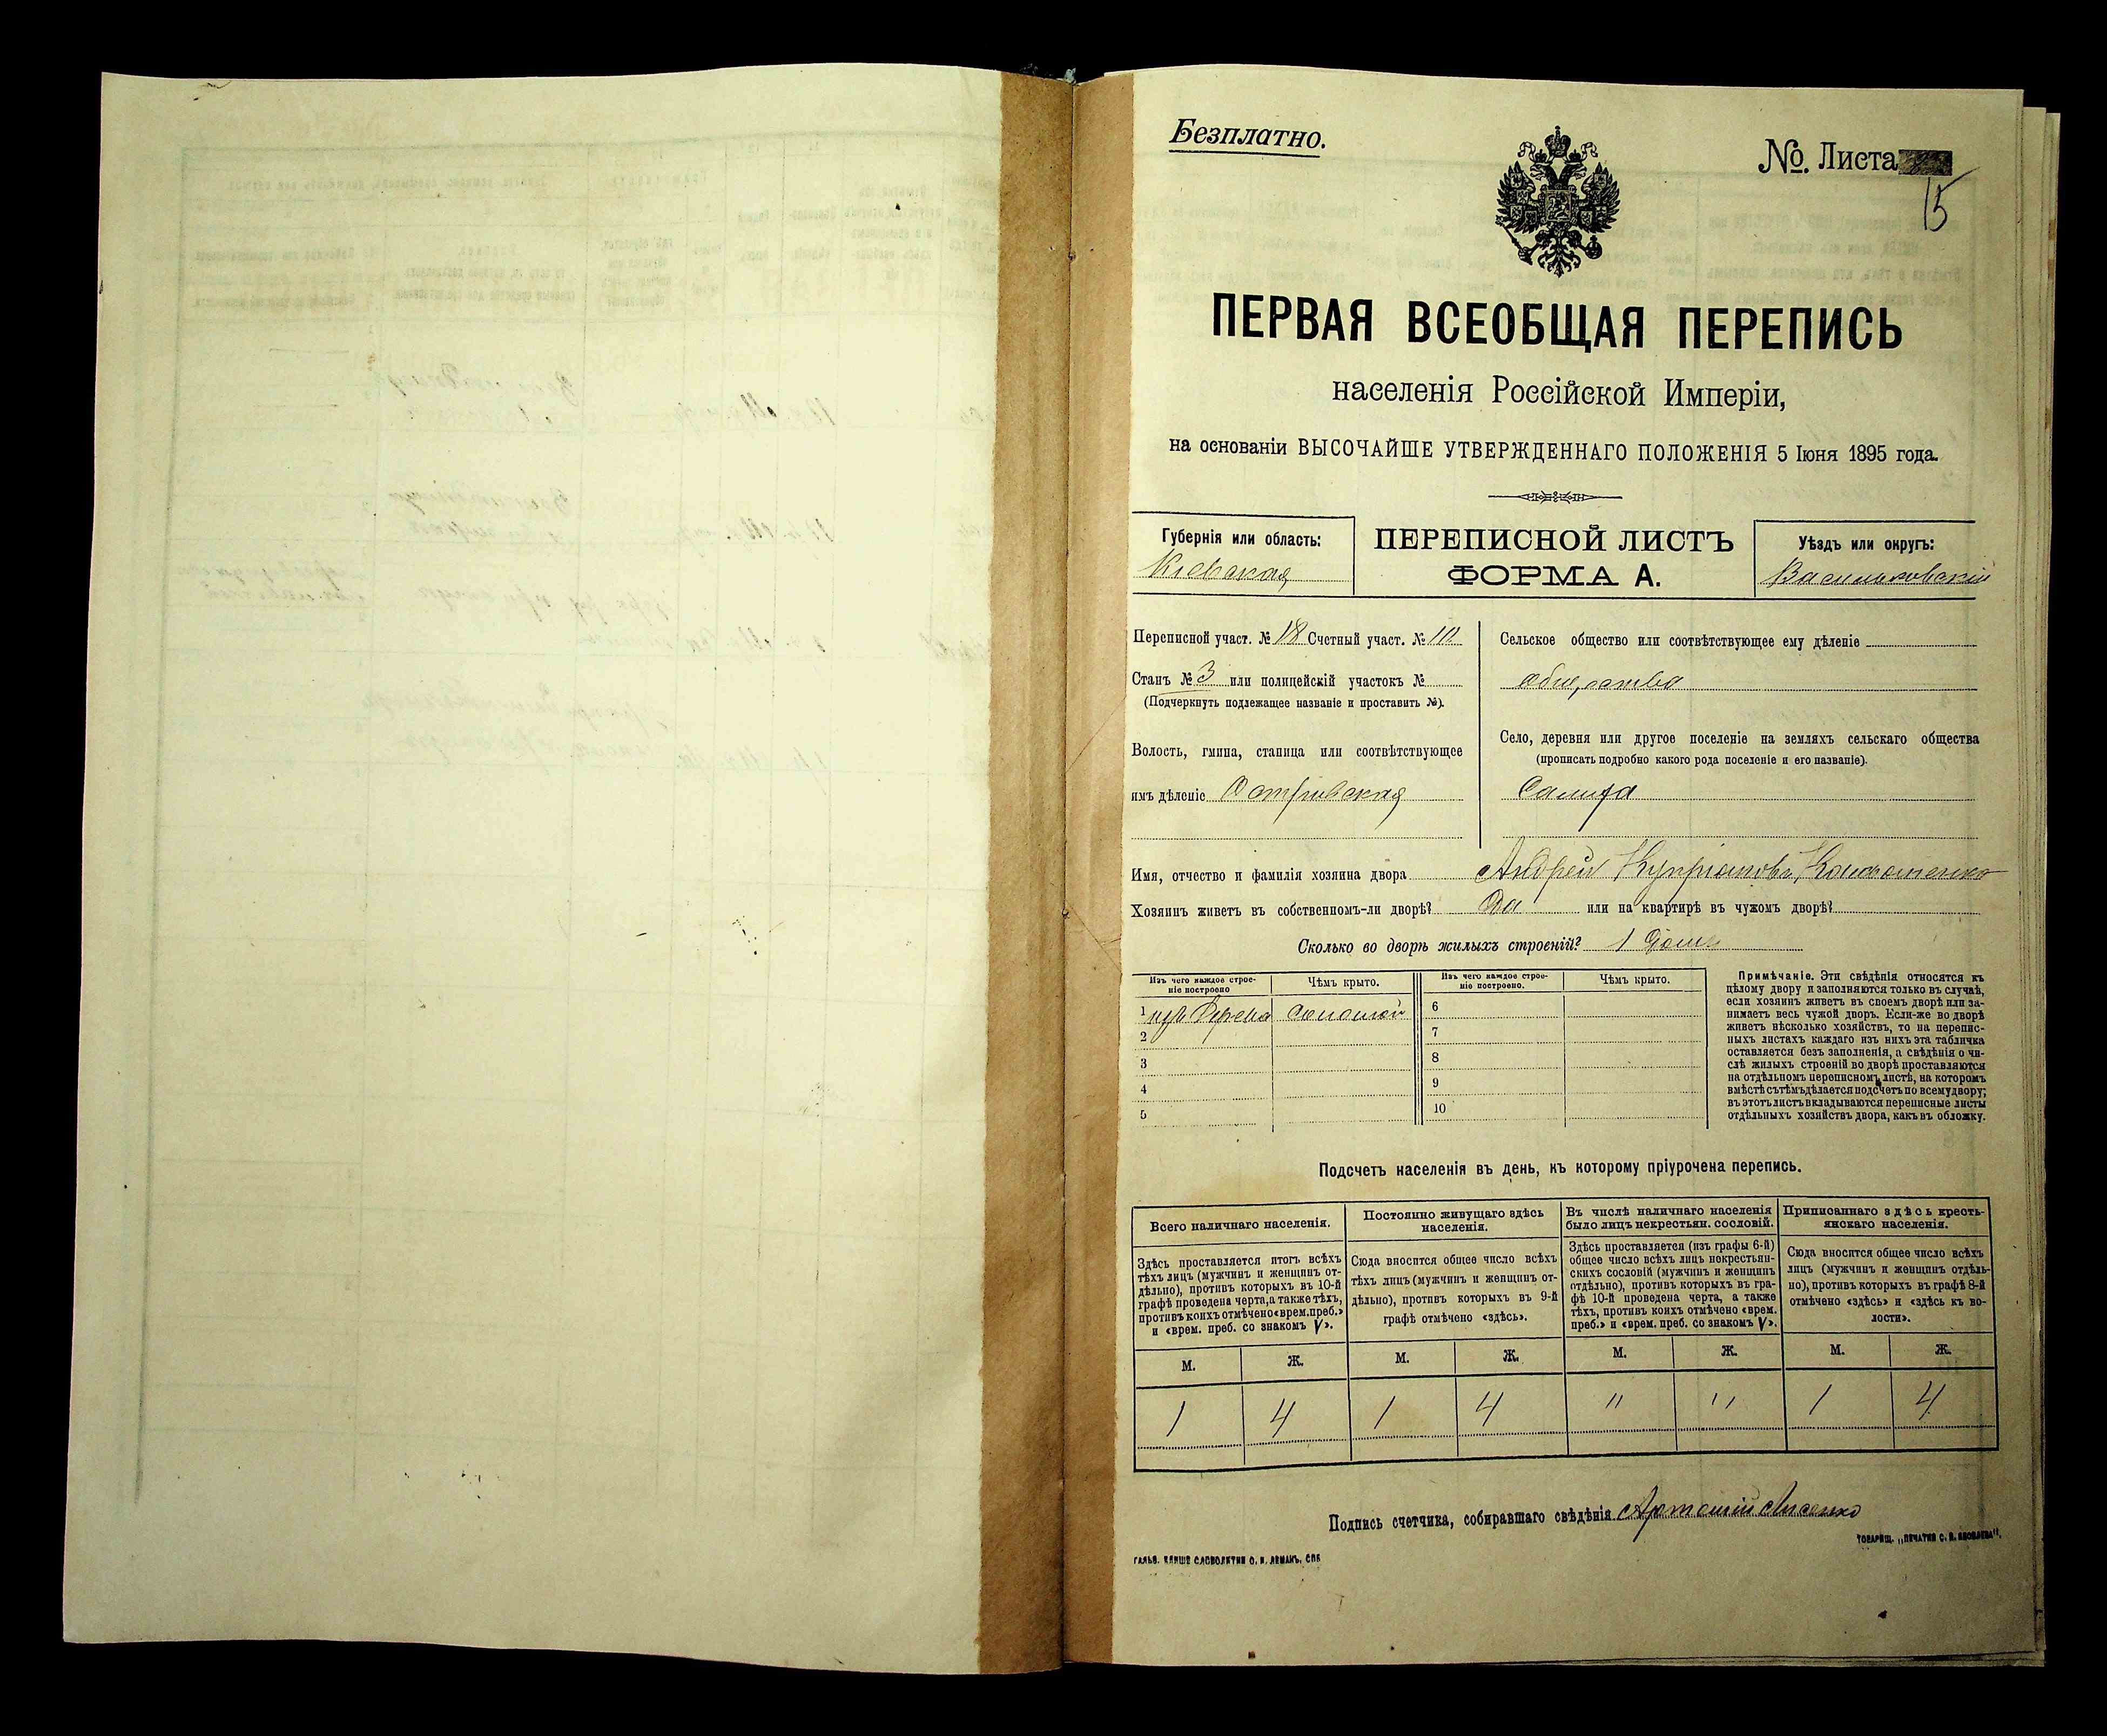 Безплатно.
№ Листа
15
ПЕРВАЯ ВСЕОБЩАЯ ПЕРЕПИСЬ
населенія Россійской Имперіи,
на основаніи ВЫСОЧАЙШЕ УТВЕРЖДЕННАГО ПОЛОЖЕНІЯ 5 Іюня 1895 года.
Губернія или область:
Кіевская
ПЕРЕПИСНОЙ ЛИСТЪ
ФОРМА А.
Уѣздъ или округъ:
Васильковскій
Переписной участ. № 18 Счетный участ. №
Станъ № 3 или полицейскій участокъ №
(Подчеркнуть подлежащее названіе и проставить №).
Волость, гмина, станица или соотвѣтствующее
имъ дѣленіе Острівская
Сельское общество или соотвѣтствующее ему дѣленіе
Село, деревня или другое поселеніе на земляхъ сельскаго общества
(прописать подробно какого рода поселеніе и его названіе).
Имя, отчество и фамилія хозяина двора Андрей Купріяновъ
Хозяинъ живетъ въ собственномъ-ли дворѣ? Да или на квартирѣ въ чужомъ дворѣ?
Сколько во дворѣ жилыхъ строеній? 1 Домъ
Изъ чего каждое строе-
ніе построено
Чѣмъ крыто.
Изъ чего каждое строе-
ніе построено.
Чѣмъ крыто.
1 изъ Дерева Соломой
2
3
4
5
6
7
8
9
10
Примѣчаніе. Эти свѣдѣнія относятся къ
цѣлому двору и заполняются только въ случаѣ,
если хозяинъ живетъ въ своемъ дворѣ или за-
нимаетъ весь чужой дворъ. Если-же во дворѣ
живетъ нѣсколько хозяйствъ, то на перепис-
ныхъ листахъ каждаго изъ нихъ эта табличка
оставляется безъ заполненія, а свѣдѣнія о чи-
слѣ жилыхъ строеній во дворѣ проставляются
на отдѣльномъ переписномъ листѣ, на которомъ
вмѣстѣ съ тѣмъ дѣлается подсчетъ по всему двору;
въ этотъ листъ вкладываются переписные листы
отдѣльныхъ хозяйствъ двора, какъ въ обложку.
Подсчетъ населенія въ день, къ которому пріурочена перепись.
Всего наличнаго населенія.
Здѣсь проставляется итогъ всѣхъ
тѣхъ лицъ (мужчинъ и женщинъ от-
дѣльно), противъ которыхъ въ 10-й
графѣ проведена черта, а также тѣхъ,
противъ коихъ отмѣчено «врем. преб.»
и «врем. преб. со знакомъ V».
Постоянно живущаго здѣсь
населенія.
Сюда вносится общее число всѣхъ
тѣхъ лицъ (мужчинъ и женщинъ от-
дѣльно), противъ которыхъ въ 9-й
графѣ отмѣчено «здѣсь».
Въ числѣ наличнаго населенія
было лицъ некрестьян. сословій.
Здѣсь проставляется (изъ графы 6-й)
общее число всѣхъ лицъ некрестьян-
скихъ сословій (мужчинъ и женщинъ
отдѣльно), противъ которыхъ въ гра-
фѣ 10-й проведена черта, а также
тѣхъ, противъ коихъ отмѣчено «врем.
преб.» и «врем. преб. со знакомъ V».
Приписаннаго здѣсь кресть-
янскаго населенія.
Сюда вносится общее число всѣхъ
лицъ (мужчинъ и женщинъ отдѣль-
но), противъ которыхъ въ графѣ 8-й
отмѣчено «здѣсь» и «здѣсь къ во-
лости».
М. Ж. М. Ж. М. Ж. М. Ж.
1 4 1 4 " " 1 4
Подпись счетчика, собиравшаго свѣдѣнія Артемій Лисенко
ТОВАРИЩ. „ПЕЧАТНЯ С. П. ЯКОВЛЕВА".
ГАЛЬВ. КЛИШЕ СЛОВОЛИТНИ О. И. ЛЕМАНЪ. СПБ